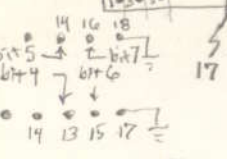 14 16 18
bit 5 bit 7
bit 4 bit 6
17
14 13 15 17